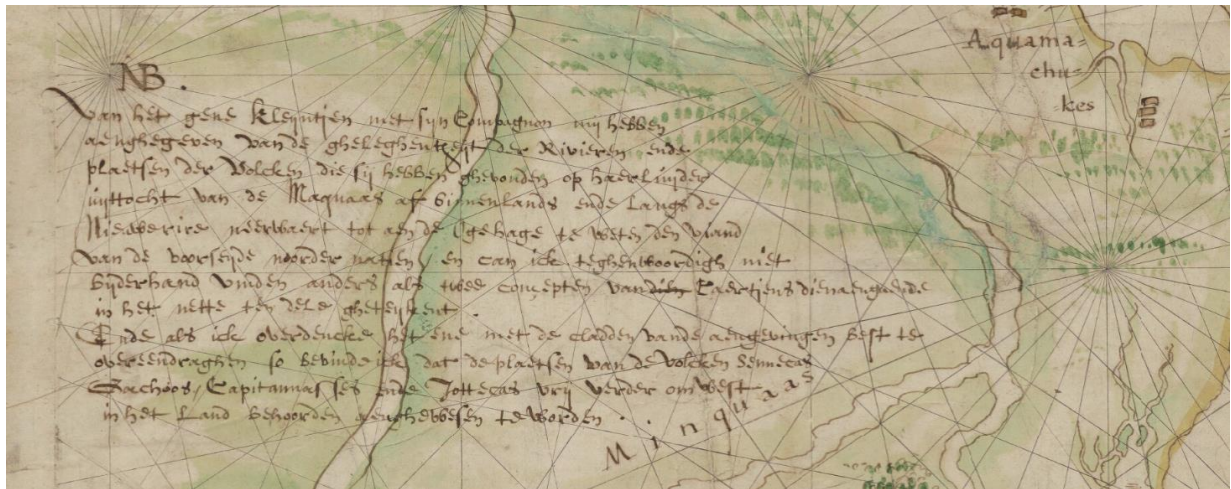 NB.
Van het gene Kleijntjen met sijn Compagnon mij hebben
aenghegeven van de gheleghentheijt der Rivieren ende
plaetsen der Volcken die sij hebben ghevonden op haerluijder
uijttocht van de Maquaas af binnenlands ende langs de
Nieuwe neerwaert tot aen de Ogehage te weten den viand
van de voorseijde noorder natien en can ick teghenwoordigh niet
bijderhand vinden anders als twee concepten van Caertjens dienaenguende
in het nette ten dele gheteikent.
Ende als ick overdencke het ene met de cladden vande aengevingen best te
overeendraghen so bevinde ick dat de plaetsen van de volcken Sennecas
Gachoos, Capitannasses ende Jottecas vrij verder om west
in het Land behoorden aenghewesen te worden.
Minquaas
Aquama-
chu-
kes